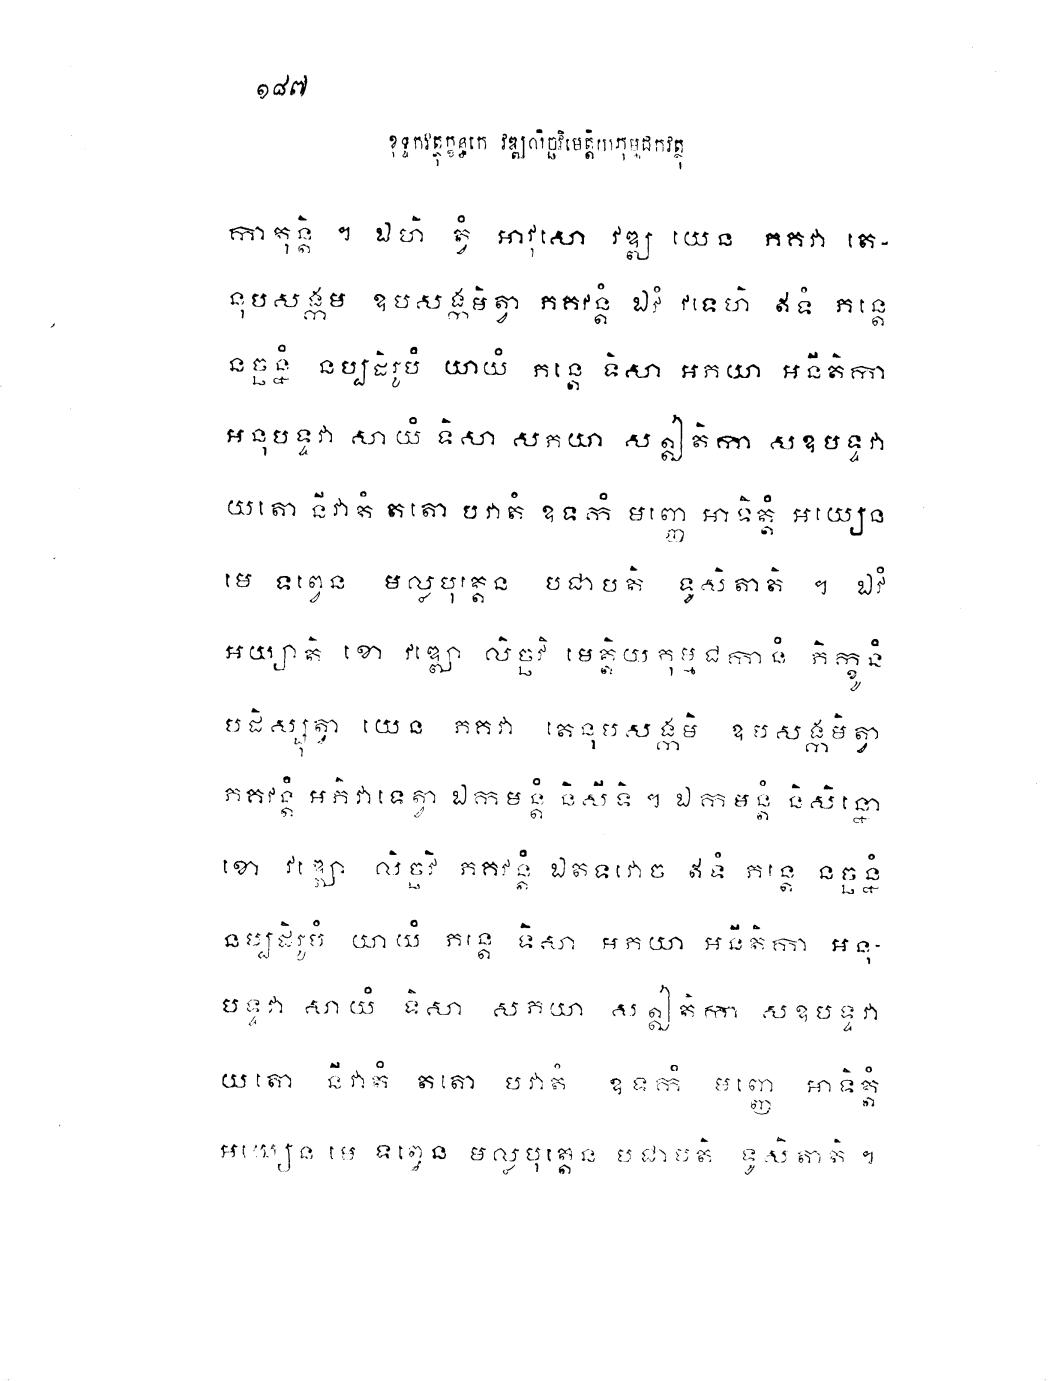 ១៨៧
ខុទ្ទកវត្ថុក្ខន្ធកេ វឌ្ឍលិច្ឆវិមេត្តិយភុម្មជកវត្ថុ
កាតុន្តិ ។ ឯហិ ត្វំ អាវុសោ វឌ្ឍ យេន ភគវា តេ-
នុបសង្កម ឧបសង្កមិត្វា ភគវន្តំ ឯវំ វទេហិ ឥទំ ភន្តេ
នច្ឆន្នំ នប្បដិរូបំ យាយំ ភន្តេ ទិសា អភយា អនីតិកា
អនុបទ្ទវា សាយំ ទិសា សភយា សឦតិកា សឧបទ្ទវា
យតោ នីវាតំ តតោ បវាតំ ឧទកំ មញ្ញេ អាទិត្តំ អយ្យេន
មេ ទព្វេន មល្លបុត្តេន បជាបតិ ទូសិតាតិ ។ ឯវំ
អយ្យាតិ ខោ វឌ្ឍោ លិច្ឆវិ មេត្តិយភុម្មជកានំ ភិក្ខូនំ
បដិស្សុត្វា យេន ភគវា តេនុបសង្កមិ ឧបសង្កមិត្វា
ភគវន្តំ អភិវាទេត្វា ឯកមន្តំ និសីទិ ។ ឯកមន្តំ និសិន្នោ
ខោ វឌ្ឍោ លិច្ឆវិ ភគវន្តំ ឯតទវោច ឥទំ ភន្តេ នច្ឆន្នំ
នប្បដិរូបំ យាយំ ភន្តេ ទិសា អភយា អនីតិកា អនុ-
បទ្ទវា សាយំ ទិសា សភយា សឦតិកា សឧបទ្ទវា
យតោ នីវាតំ តតោ បវាតំ ឧទកំ មញ្ញេ អាទិត្តំ
អយ្យេន មេ ទព្វេន មល្លបុត្តេន បជាបតិ ទូសិតាតិ ។